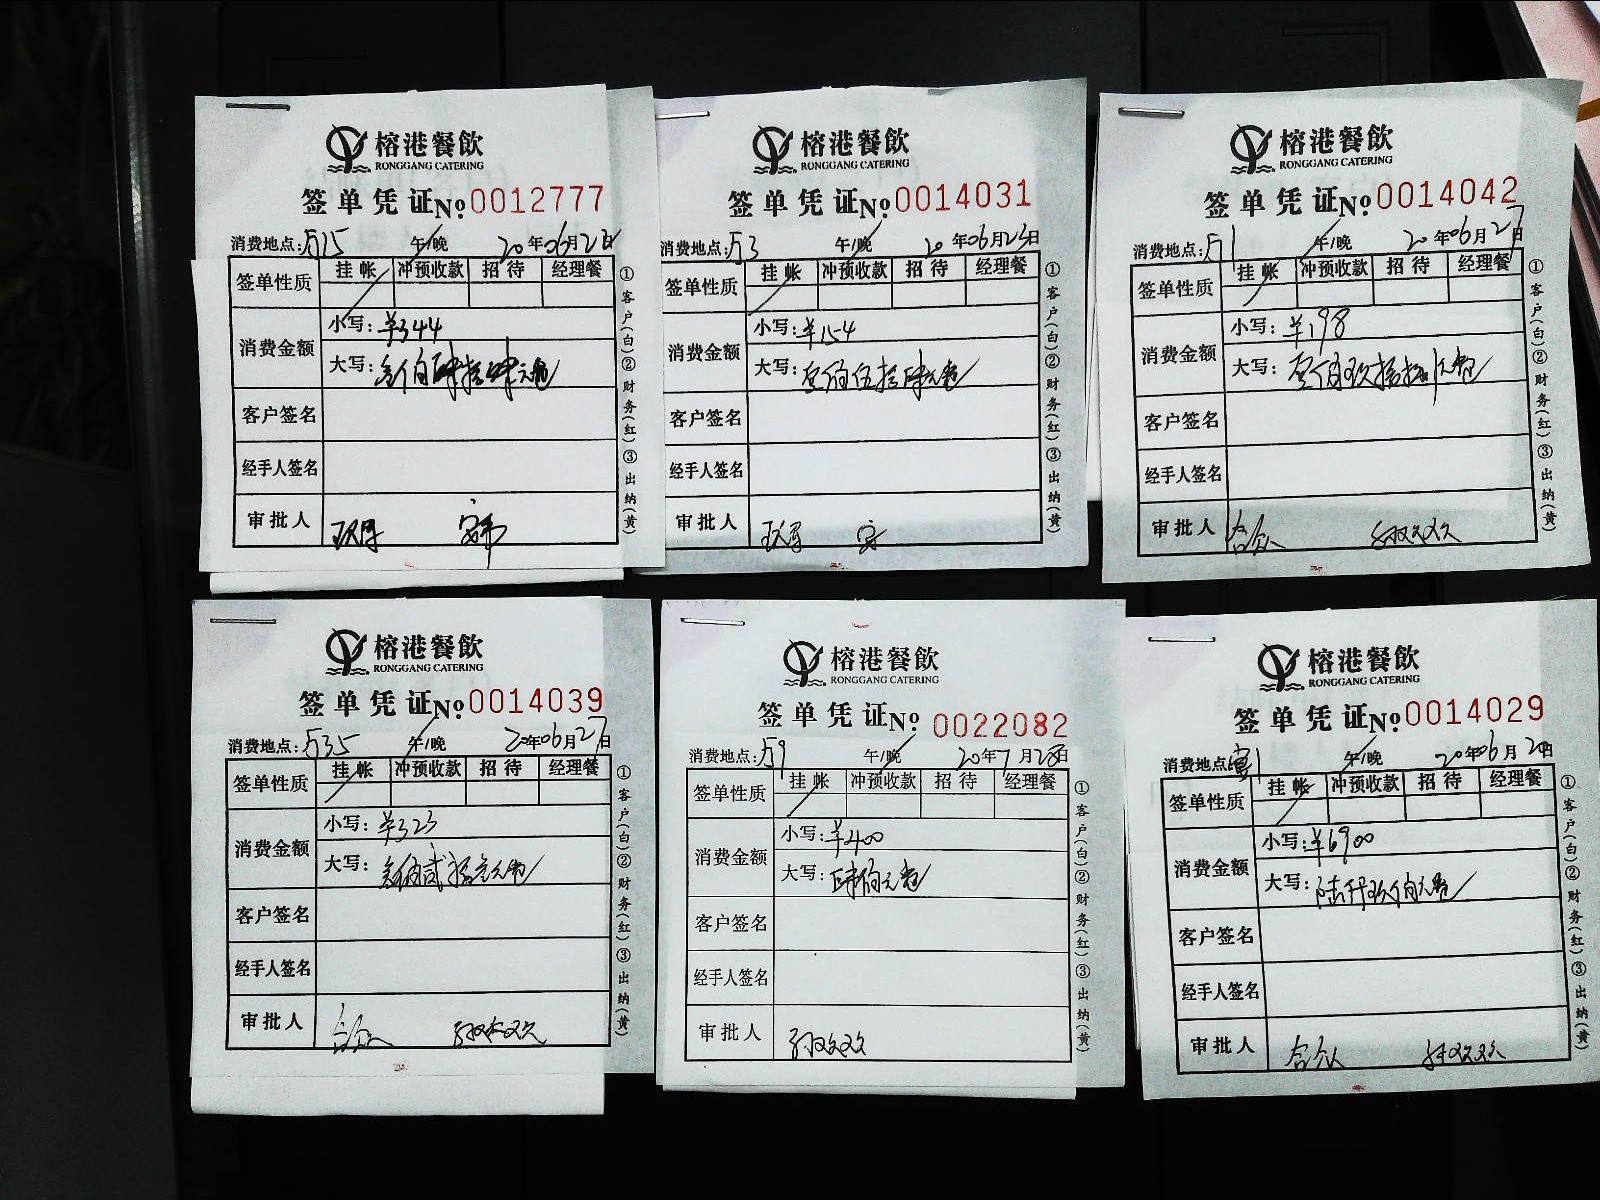 榕港餐飲
RONGGANG CATERING
签单凭证 No. 0012777
消费地点: 午/晚 20年06月2日
签单性质 挂帐 冲预收款 招待 经理餐
消费金额
小写: ¥344
大写: 叁佰肆拾肆元
客户签名
经手人签名
审批人
①客户(白)②财务(红)③出纳(黄)
榕港餐飲
RONGGANG CATERING
签单凭证 No. 0014031
消费地点: 午/晚 20年06月23日
签单性质 挂帐 冲预收款 招待 经理餐
消费金额
小写: ¥154
大写: 壹佰伍拾肆元
客户签名
经手人签名
审批人
①客户(白)②财务(红)③出纳(黄)
榕港餐飲
RONGGANG CATERING
签单凭证 No. 0014042
消费地点: 午/晚 20年06月27日
签单性质 挂帐 冲预收款 招待 经理餐
消费金额
小写: ¥198
大写: 壹佰玖拾捌元
客户签名
经手人签名
审批人
①客户(白)②财务(红)③出纳(黄)
榕港餐飲
RONGGANG CATERING
签单凭证 No. 0014039
消费地点: 午/晚 20年06月27日
签单性质 挂帐 冲预收款 招待 经理餐
消费金额
小写: ¥323
大写: 叁佰贰拾叁元
客户签名
经手人签名
审批人
①客户(白)②财务(红)③出纳(黄)
榕港餐飲
RONGGANG CATERING
签单凭证 No. 0022082
消费地点: 午/晚 20年7月28日
签单性质 挂帐 冲预收款 招待 经理餐
消费金额
小写: ¥400
大写: 肆佰元
客户签名
经手人签名
审批人
①客户(白)②财务(红)③出纳(黄)
榕港餐飲
RONGGANG CATERING
签单凭证 No. 0014029
消费地点: 午/晚 20年06月20日
签单性质 挂帐 冲预收款 招待 经理餐
消费金额
小写: ¥6900
大写: 陆仟玖佰元
客户签名
经手人签名
审批人
①客户(白)②财务(红)③出纳(黄)